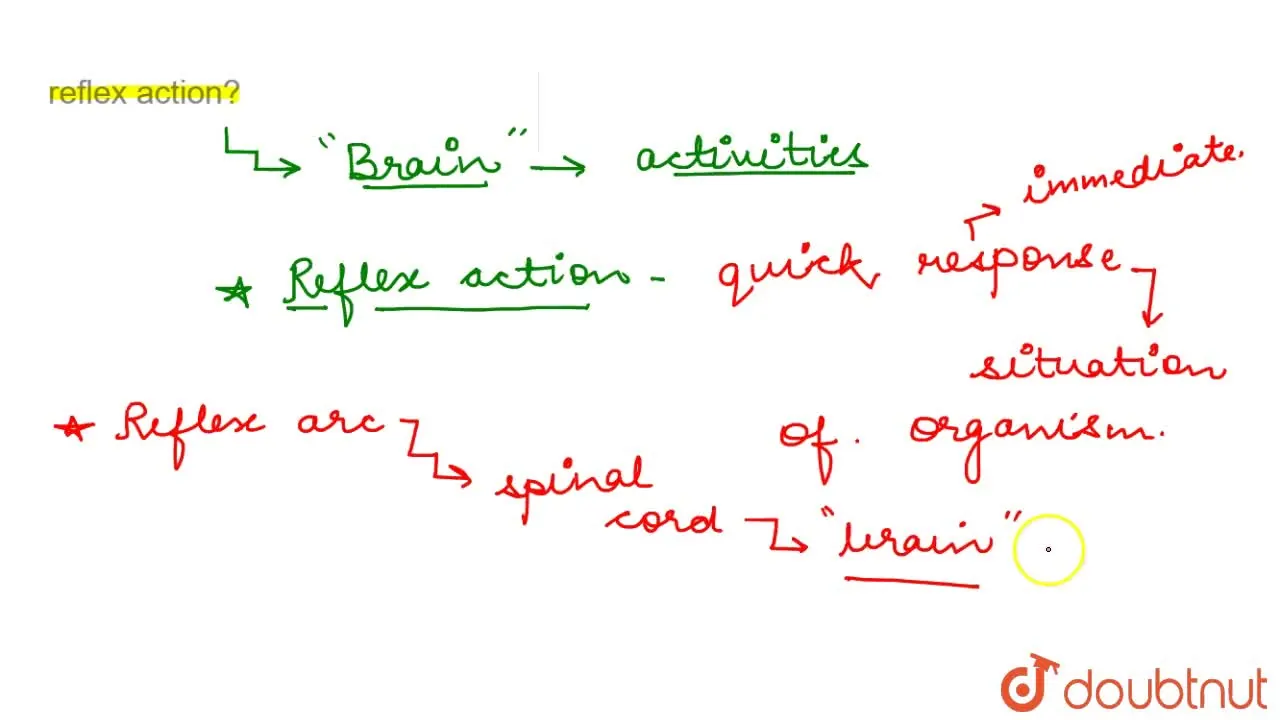 reflex action?
"Brain" → activities
immediate.
★ Reflex action - quick response
situation
★ Reflex arc
of. organism.
spinal
cord
"brain"
doubtnut